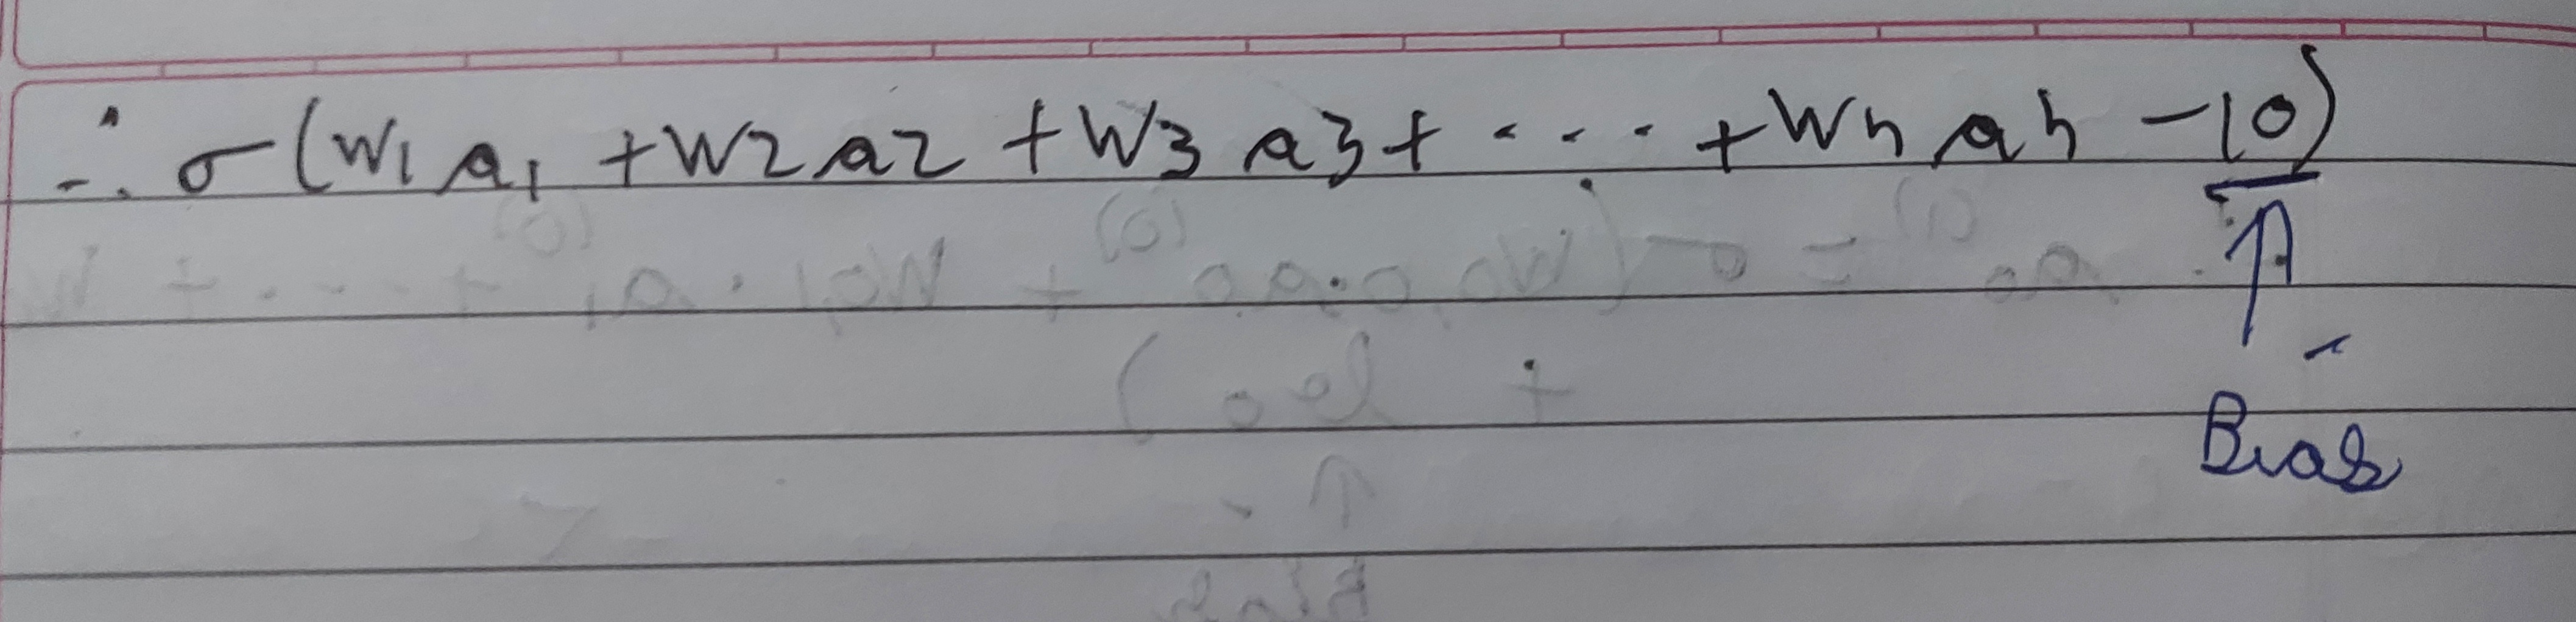 ∴ σ(W1a1 + W2a2 + W3a3 + ... + Wnan - 10)
Bias